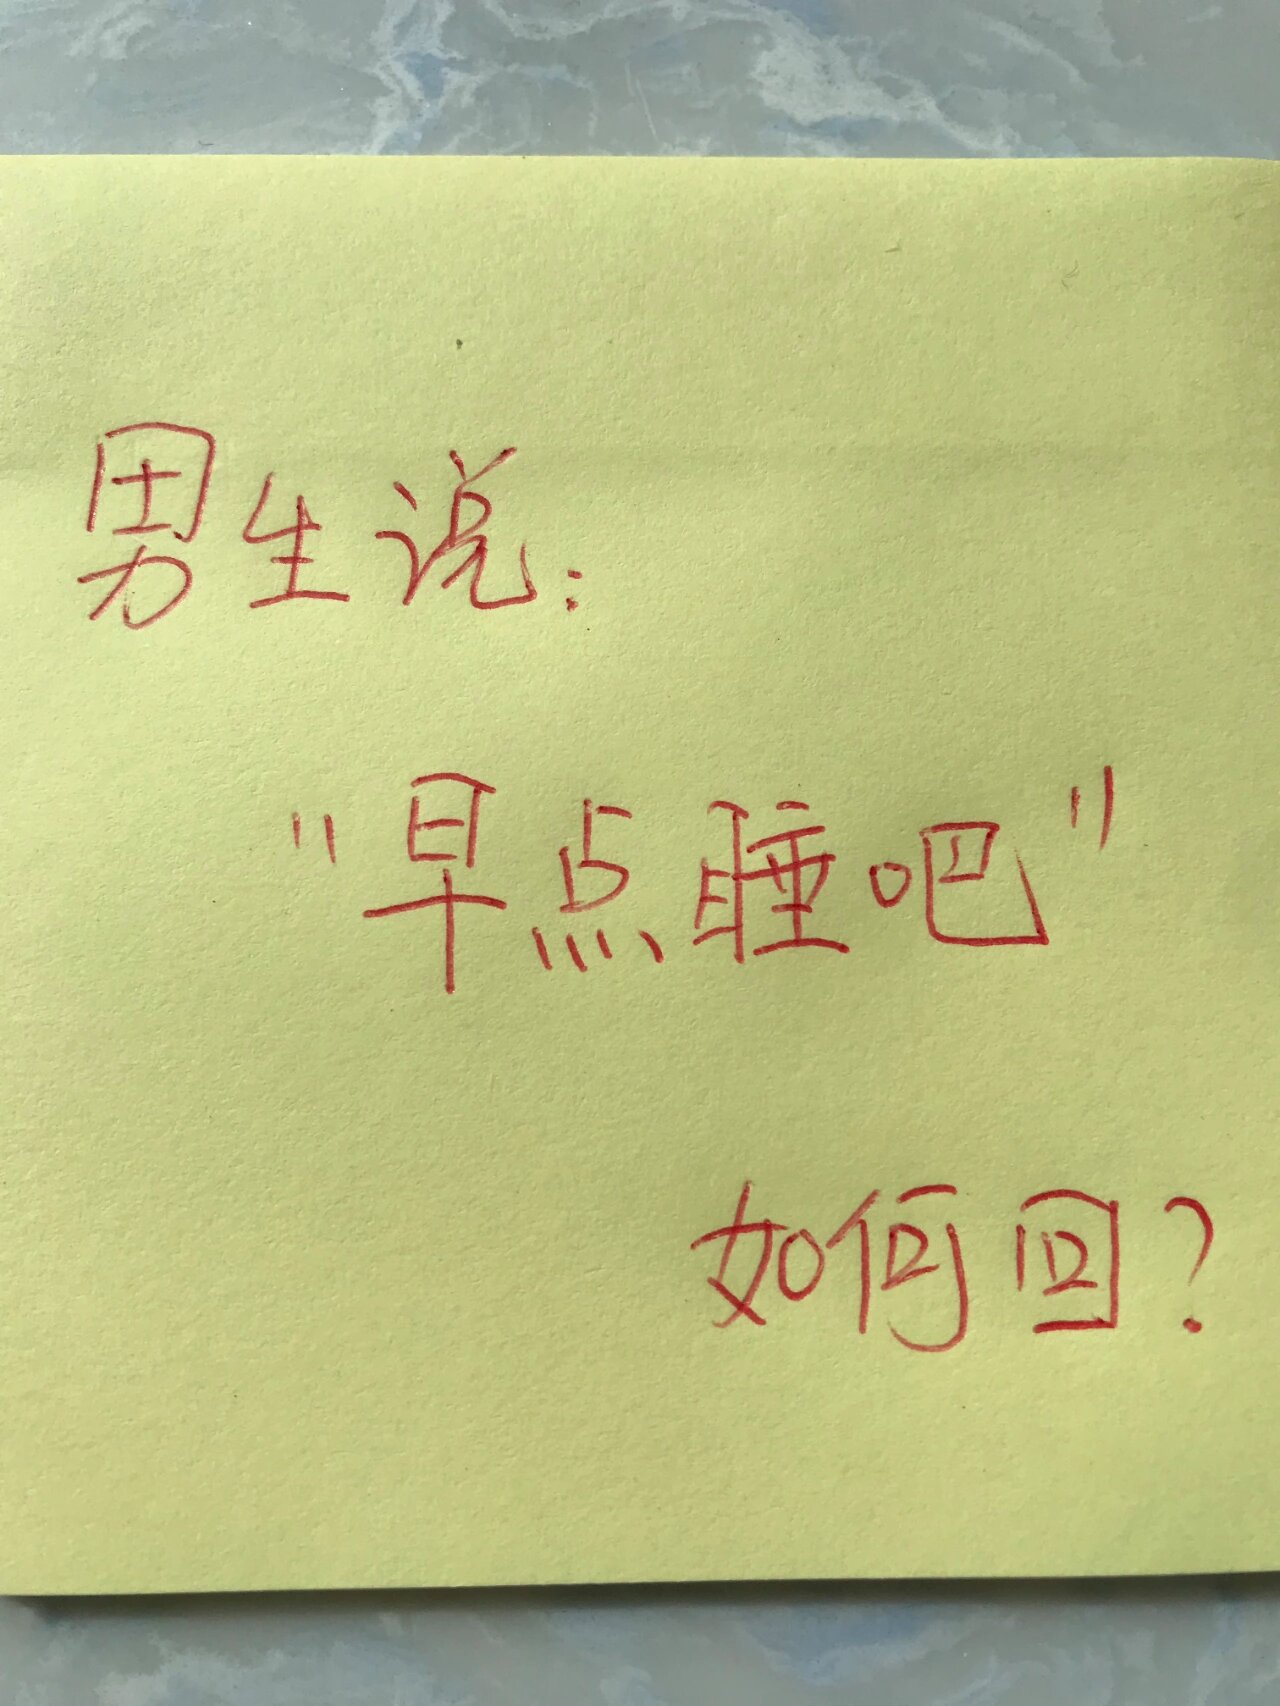 男生说：
"早点睡吧"
如何回？